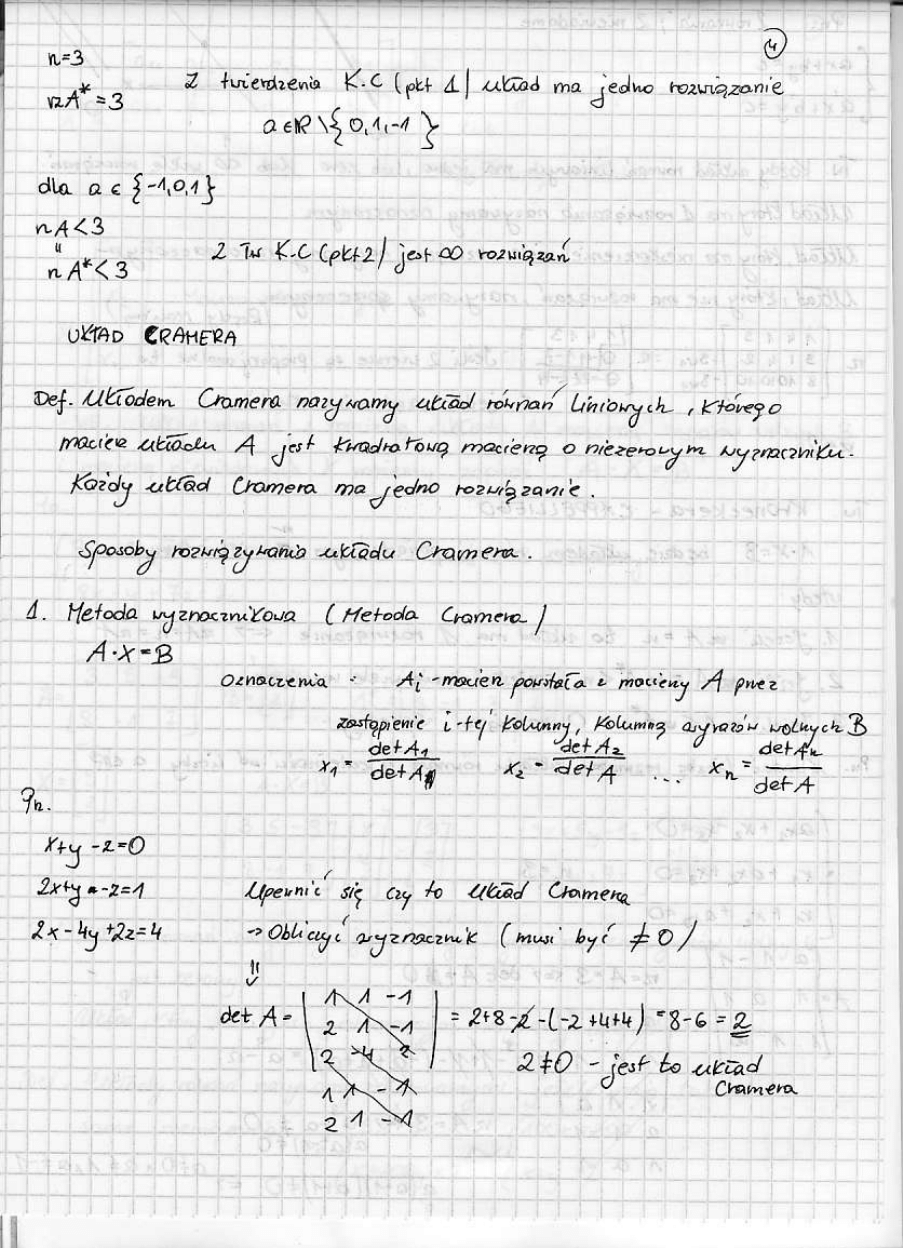 4
n=3
rzA*=3
Z twierdzenia K.C (pkt 1) układ ma jedno rozwiązanie
a∈R\{0,1,-1}
dla a ∈ {-1,0,1}
rzA<3
"
rzA*<3
Z Tw K.C (pkt2) jest ∞ rozwiązań
UKŁAD CRAMERA
Def. Układem Cramera nazywamy układ równań liniowych, którego
macierz układu A jest kwadratową macierzą o niezerowym wyznaczniku.
Każdy układ Cramera ma jedno rozwiązanie.
Sposoby rozwiązywania układu Cramera.
1. Metoda wyznacznikowa (Metoda Cramera)
A·X=B
Oznaczenia : Ai -macierz powstała z macierzy A przez
zastąpienie i-tej kolumny, kolumną wyrazów wolnych B
x1 = detA1/detA x2 = detA2/detA ... xn = detAn/detA
Prz.
x+y-z=0
2x+y-z=1 Upewnić się czy to układ Cramera
2x-4y+2z=4 → Obliczyć wyznacznik (musi być ≠0)
det A = | 1 1 -1 | = 2+8-2-(-2+4+4) = 8-6 = 2
2 1 -1
2 -4 2 2≠0 - jest to układ
1 1 -1 Cramera
2 1 -1